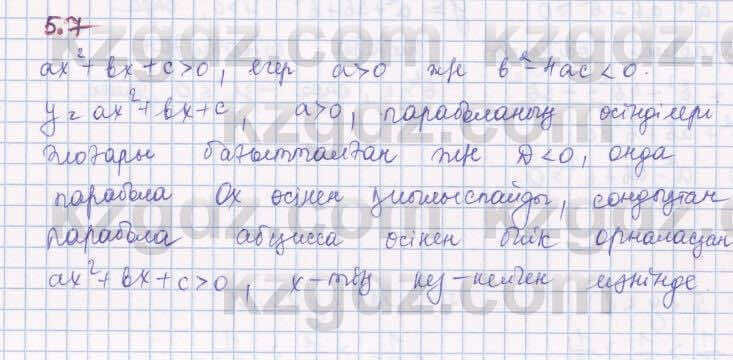 5.7
ax²+bx+c>0, егер a>0 және b²-4ac<0.
y=ax²+bx+c, a>0, параболаның өсінділері
жоғары бағытталған және D<0, онда
парабола Ox осінен қиылыспайды, сондықтан
парабола абцисса осінен биік орналасқан
ax²+bx+c>0, x-тің кез-келген мәнінде.
kzgdz.com